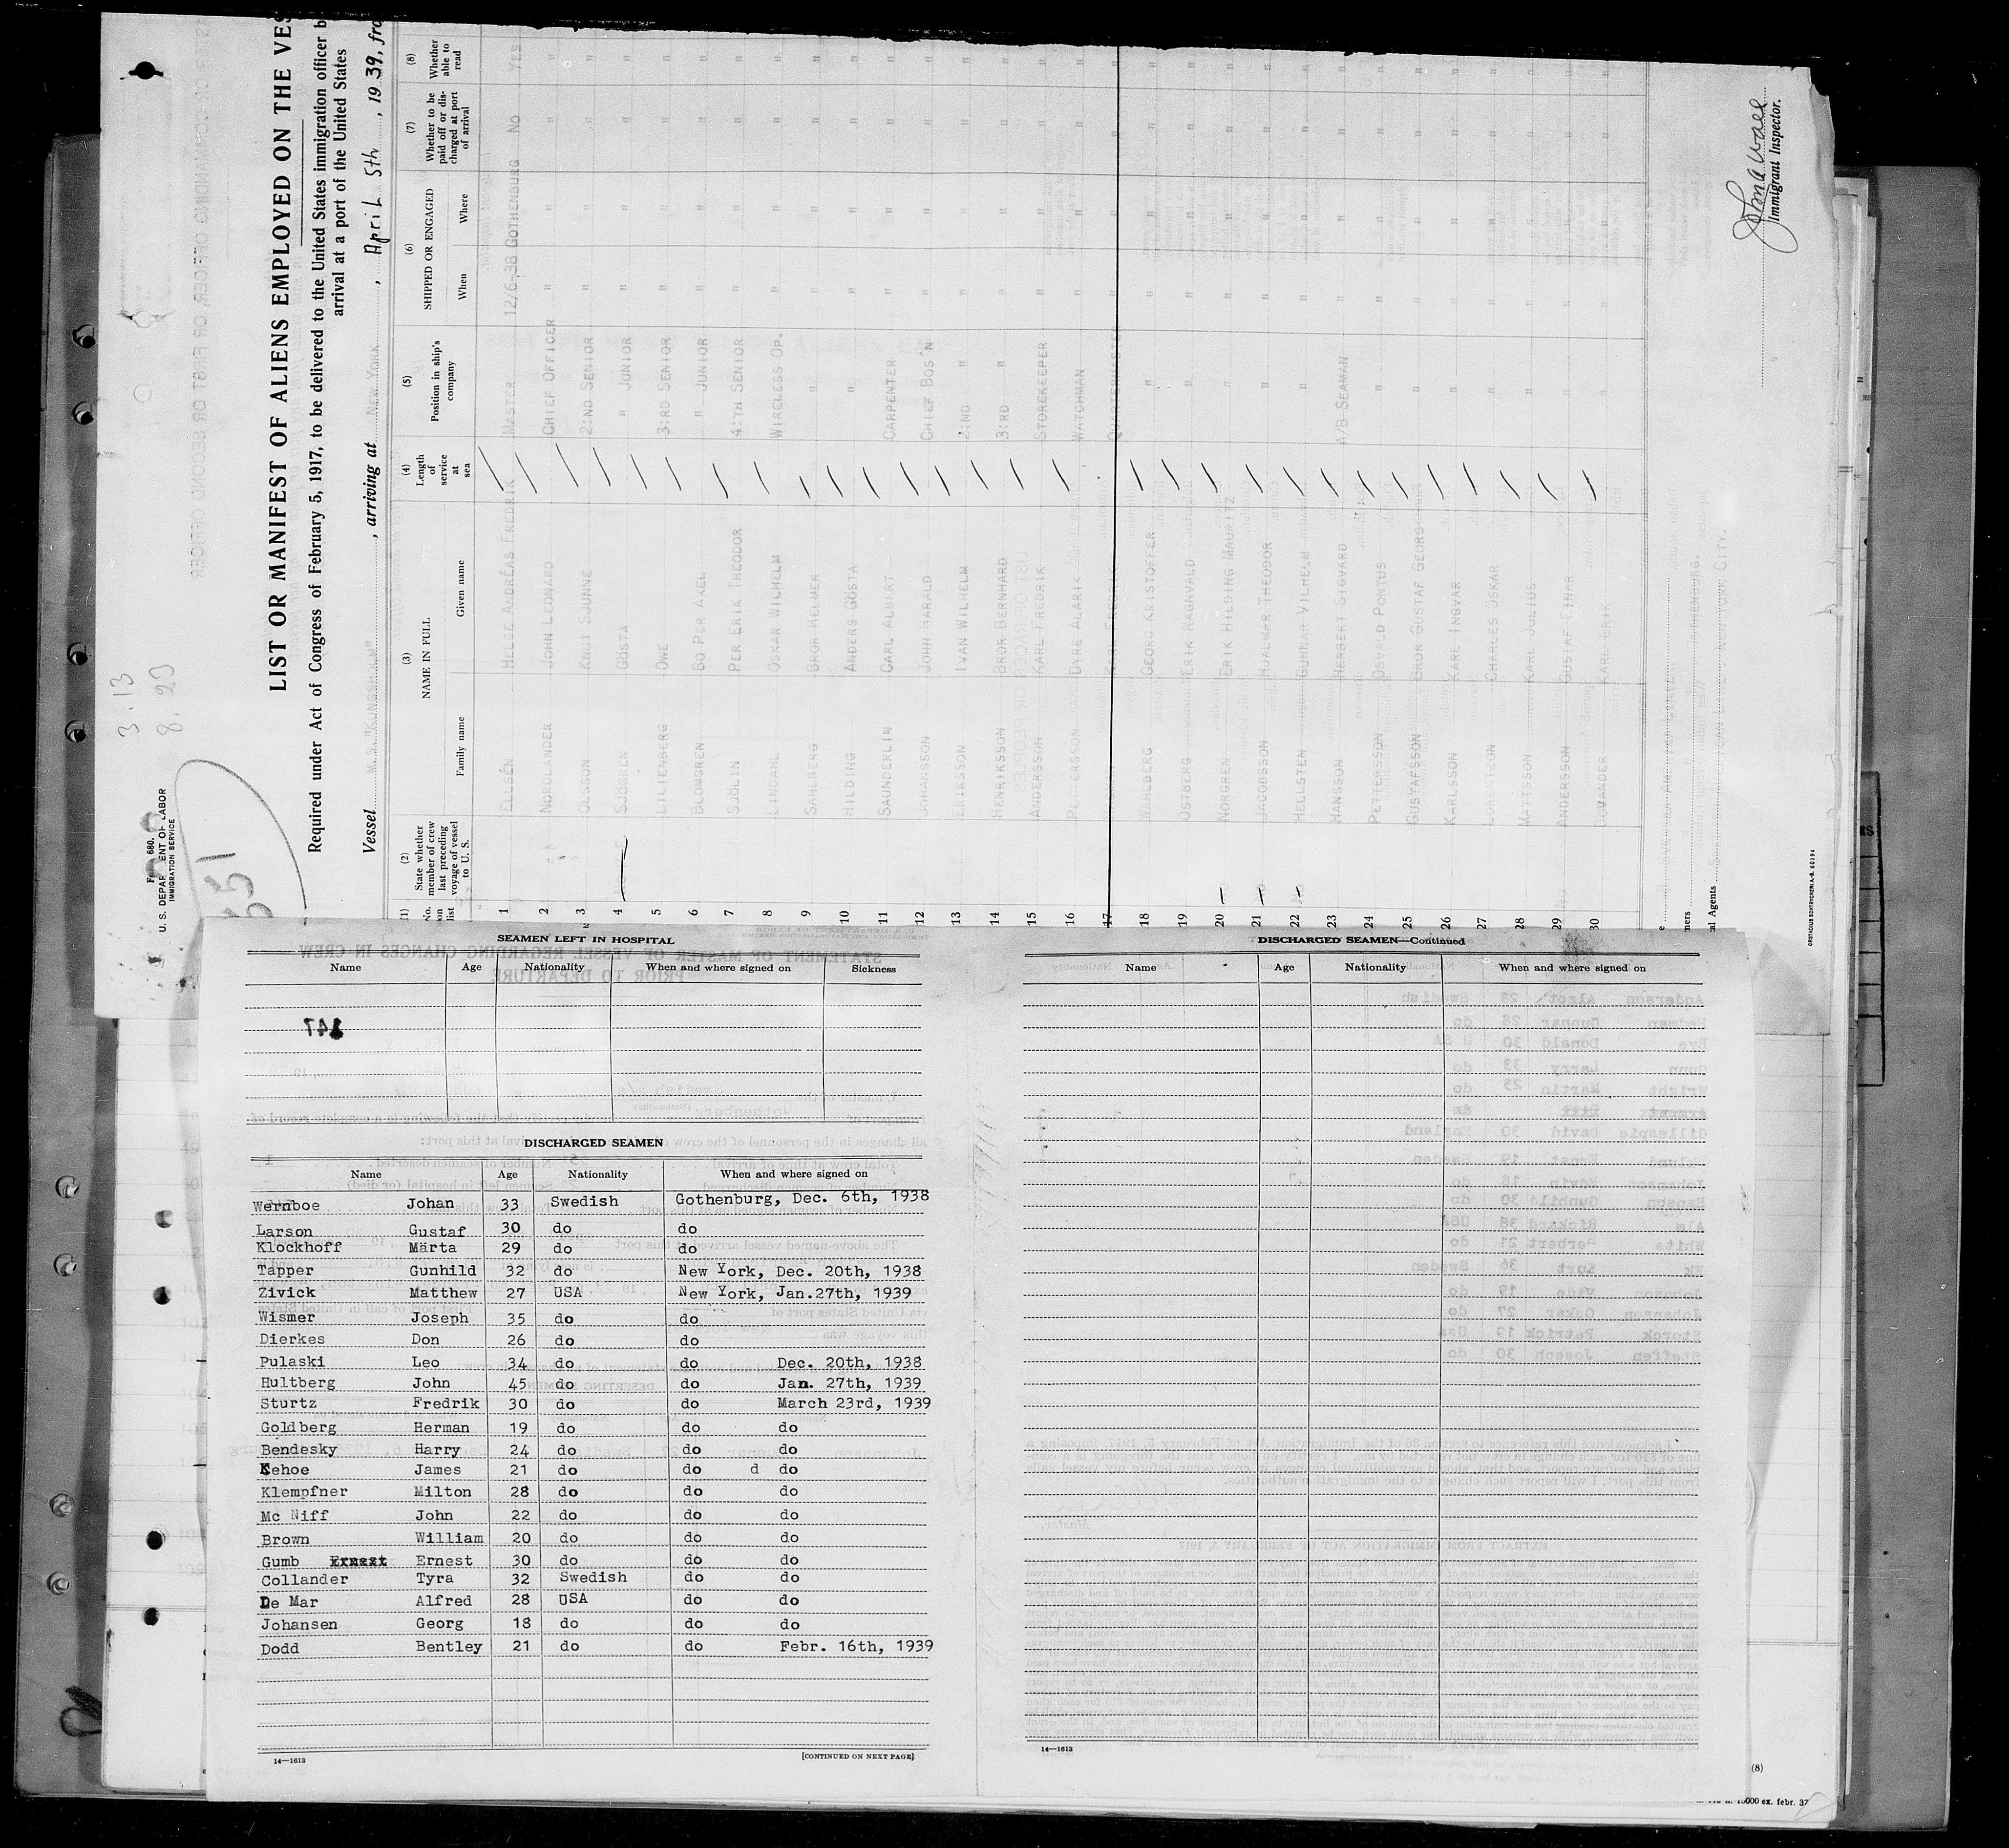 3.13
8.29
Form 680.
U. S. DEPARTMENT OF LABOR
IMMIGRATION SERVICE
LIST OR MANIFEST OF ALIENS EMPLOYED ON THE
Required under Act of Congress of February 5, 1917, to be delivered to the United States immigration officer
arrival at a port of the United States
Vessel M.S. "KUNGSHOLM", arriving at NEW YORK, April 5th, 1939,
(1) (2) (3) (4) (5) (6) (7) (8)
No. on list State whether member of crew last preceding voyage of vessel to U. S. NAME IN FULL Length of service at sea Position in ship's company SHIPPED OR ENGAGED Whether to be paid off or discharged at port of arrival Whether able to read
Family name Given name When Where
1 ELLSÉN HELGE ANDRÉAS FREDRIK MASTER 12/6-38 GOTHENBURG NO YES
2 NORDLANDER JOHN LEONARD CHIEF OFFICER " " " "
3 OLSSON KNUT SJUNNE 2:ND SENIOR " " " "
4 SJÖGREN GÖSTA " JUNIOR " " " "
5 LILIENBERG OWE 3:RD SENIOR " " " "
6 BLOMGREN BO PER AXEL " JUNIOR " " " "
7 SJÖLIN PER ERIK THEODOR 4:TH SENIOR " " " "
8 LINDAHL OSKAR WILHELM WIRELESS OP. " " " "
9 SAHLBERG BROR HELMER " " " " "
10 HILDING ANDERS GÖSTA " " " " "
11 SAUNDERLIN CARL ALBERT CARPENTER " " " "
12 JOHANSSON JOHN HARALD CHIEF BOS'N " " " "
13 ERIKSSON IVAN WILHELM 2:ND " " " " "
14 HENRIKSSON BROR BERNHARD 3:RD " " " " "
15 ANDERSSON KARL FREDRIK STOREKEEPER " " " "
16 PETTERSSON DYRE ALARIK WATCHMAN " " " "
17 QUARTERMASTER " " " "
18 WAHLBERG GEORG KRISTOFFER " " " " "
19 ÖSTBERG ERIK RAGNVALD " " " " "
20 NORGREN ERIK HILDING MAURITZ " " " " "
21 JACOBSSON HJALMAR THEODOR " " " " "
22 HELLSTEN GUNNAR VILHELM " " " " "
23 HANSSON HERBERT SIGVARD A/B SEAMAN " " " "
24 PETTERSSON OSVALD PONTUS " " " " "
25 GUSTAFSSON BROR GUSTAF GEORG " " " " "
26 KARLSSON KARL INGVAR " " " " "
27 LORENTZON CHARLES OSKAR " " " " "
28 MATTSSON KARL JULIUS " " " " "
29 ANDERSSON GUSTAF EINAR " " " " "
30 KARL ERIK " " " " "
Immigrant Inspector.
SEAMEN LEFT IN HOSPITAL
Name Age Nationality When and where signed on Sickness
147
DISCHARGED SEAMEN
Name Age Nationality When and where signed on
Wernboe Johan 33 Swedish Gothenburg, Dec. 6th, 1938
Larson Gustaf 30 do do
Klockhoff Märta 29 do do
Tapper Gunhild 32 do New York, Dec. 20th, 1938
Zivick Matthew 27 USA New York, Jan.27th, 1939
Wismer Joseph 35 do do
Dierkes Don 26 do do
Pulaski Leo 34 do do Dec. 20th, 1938
Hultberg John 45 do do Jan. 27th, 1939
Sturtz Fredrik 30 do do March 23rd, 1939
Goldberg Herman 19 do do do
Bendesky Harry 24 do do do
Kehoe James 21 do do d do
Klempfner Milton 28 do do do
Mc Niff John 22 do do do
Brown William 20 do do do
Gumb Ernest Ernest 30 do do do
Collander Tyra 32 Swedish do do
De Mar Alfred 28 USA do do
Johansen Georg 18 do do do
Dodd Bentley 21 do do Febr. 16th, 1939
14—1613 [CONTINUED ON NEXT PAGE]
DISCHARGED SEAMEN—Continued
Name Age Nationality When and where signed on
14—1613
(8)
15000 ex. febr. 37